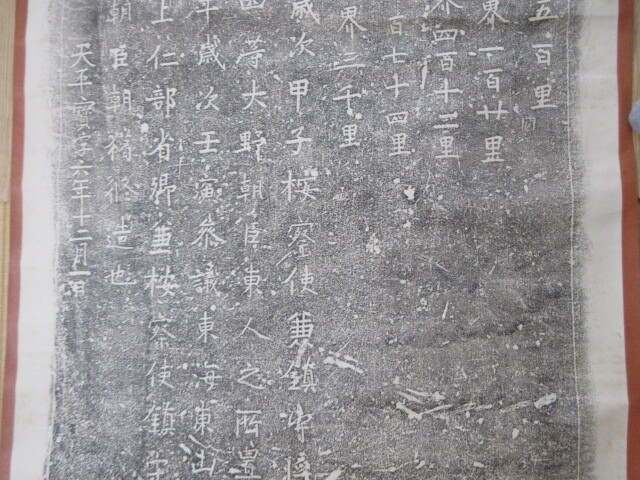 五百里
界一百廿里
界四百十二里
百七十四里
界三千里
歳次甲子桉察使兼鎮守將
四等大野朝臣東人之所置
年歳次壬寅參議東海東山
上仁部省卿兼桉察使鎮守
朝臣朝獦修造也
天平寶字六年十二月一日